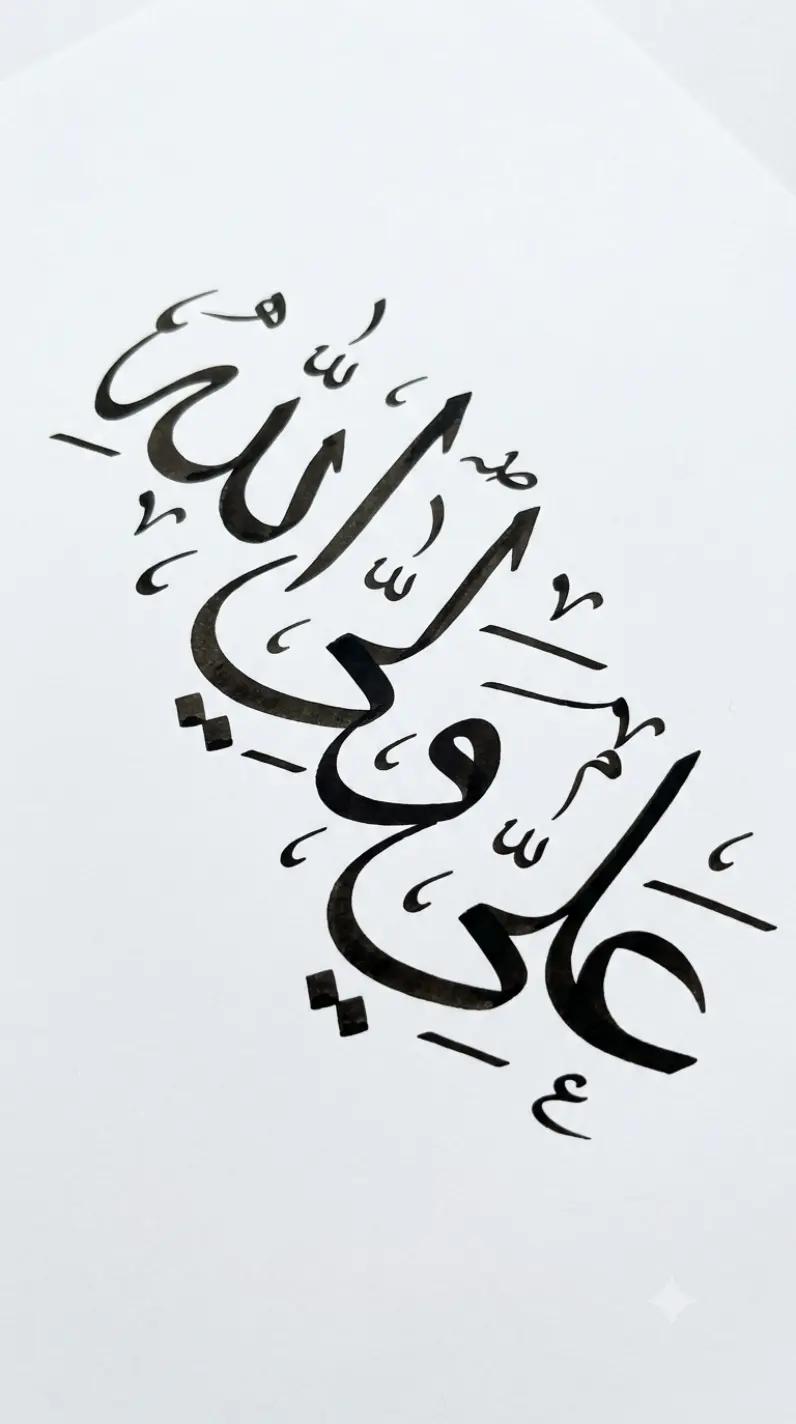 عَلِيّ وَلِيّ اللّٰهِ